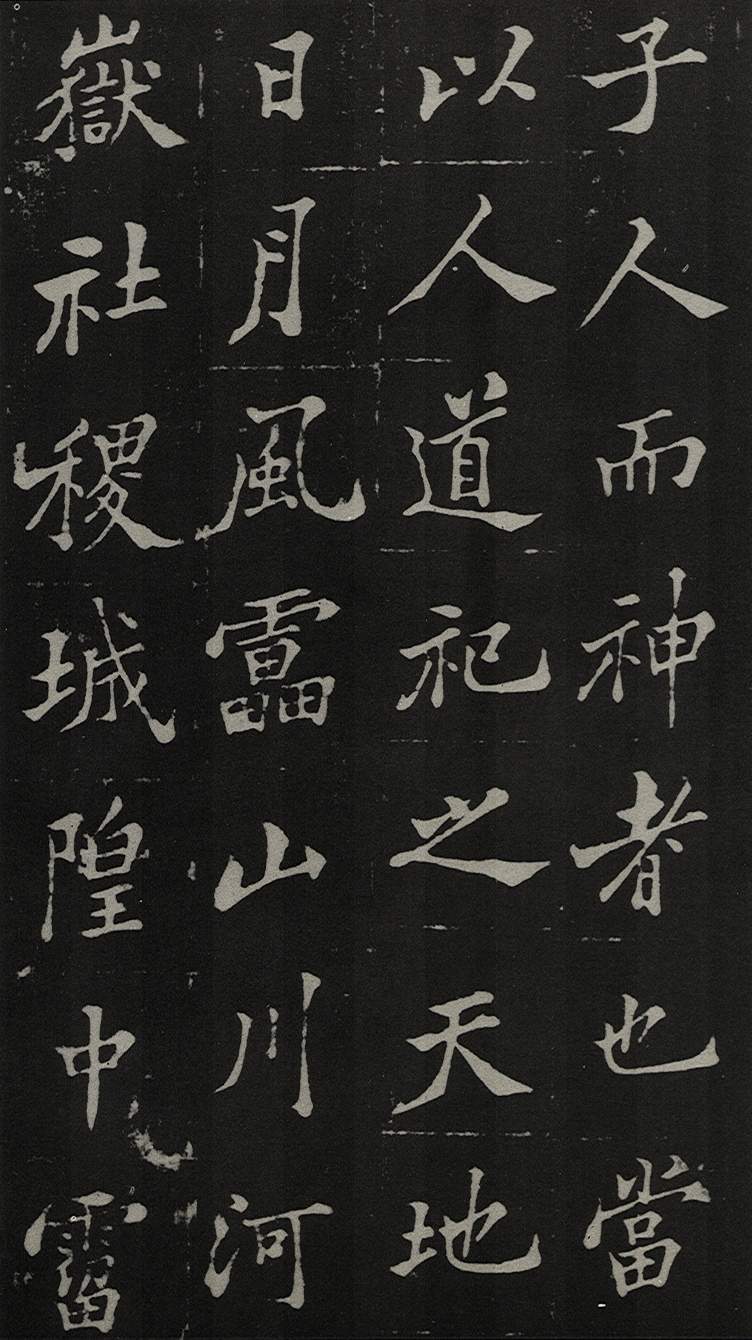 子人而神者也當
以人道祀之天地
日月風雷山川河
嶽社稷城隍中霤